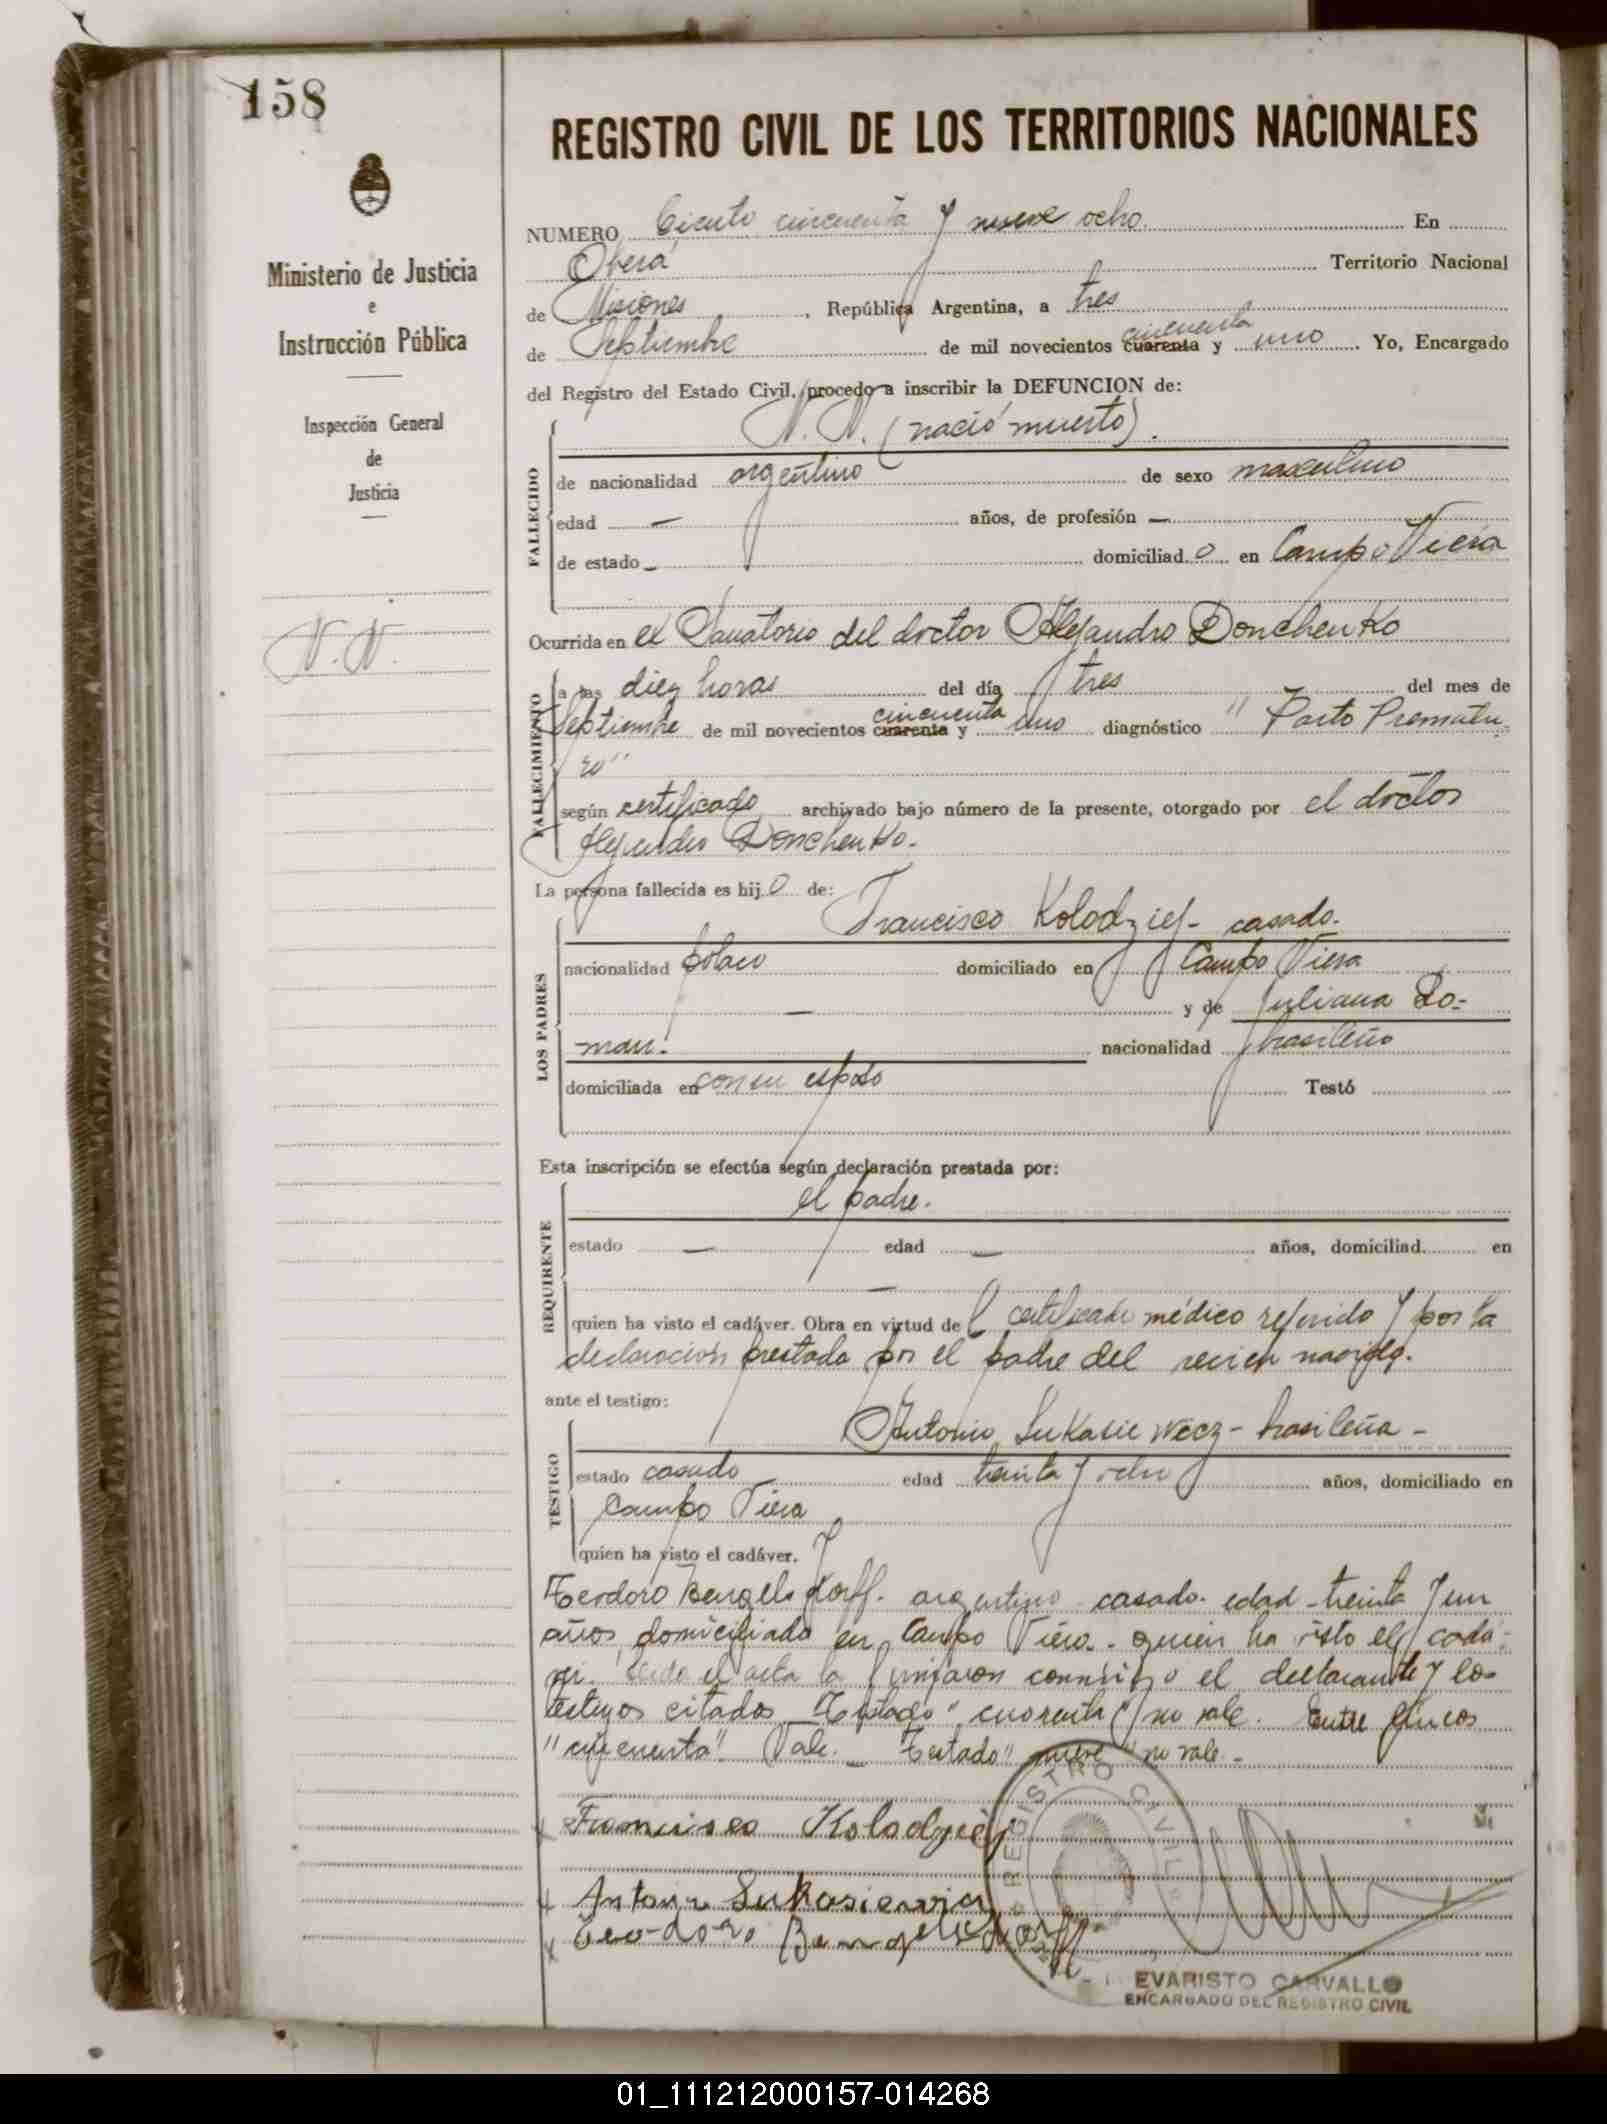 158
Ministerio de Justicia
e
Instrucción Pública
Inspección General
de
Justicia
N. N.
REGISTRO CIVIL DE LOS TERRITORIOS NACIONALES
NUMERO Ciento cincuenta y nueve ocho. En
Oberá Territorio Nacional
de Misiones, República Argentina, a tres
cincuenta
de Septiembre de mil novecientos cuarenta y uno. Yo, Encargado
del Registro del Estado Civil, procedo a inscribir la DEFUNCION de:
N. N. (nació muerto).
FALLECIDO
de nacionalidad argentino de sexo masculino
edad — años, de profesión —
de estado — domiciliad o en Campo Viera
Ocurrida en el Sanatorio del doctor Alejandro Donchenko
FALLECIMIENTO
a las diez horas del día tres del mes de
cincuenta
Septiembre de mil novecientos cuarenta y uno diagnóstico "Parto Prematu
ro"
según certificado archivado bajo número de la presente, otorgado por el doctor
Alejandro Donchenko.
La persona fallecida es hij o de:
LOS PADRES
Francisco Kolodziej - casado.
nacionalidad polaco domiciliado en Campo Viera
— y de Juliana Ro-
man. nacionalidad brasileño
domiciliada en con su esposo Testó
Esta inscripción se efectúa según declaración prestada por:
REQUIRENTE
el padre.
estado — edad — años, domiciliad en
—
quien ha visto el cadáver. Obra en virtud del certificado médico referido y por la
declaración prestada por el padre del recien nacido.
ante el testigo:
TESTIGO
Antonio Lukasiewecz - brasileña -
estado casado edad treinta y ocho años, domiciliado en
Campo Viera
quien ha visto el cadáver. Y
Teodoro Bengelsdorff. argentino casado. edad - treinta y un
años domiciliado en Campo Viera. quien ha visto el cadá-
ver. Leida el acta la firmaron conmigo el declarante y los
testigos citados Testado "cuarenta" no vale. Entre líneas
"cincuenta" Vale. — Testado "nueve" no vale. -
x Francisco Kolodziej
x Antonio Lukasiewicz
x Teodoro Bengelsdorff
REGISTRO CIVIL
EVARISTO CARVALLO
ENCARGADO DEL REGISTRO CIVIL
01_111212000157-014268